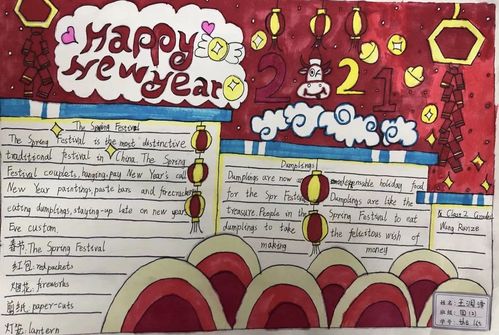 Happy
New year
2021
The Spring Festival
The Spring Festival is the most distinctive
traditional festival in China. The Spring
Festival couplets, hanging, pay New Year's call
New Year paintings, paste bars and firecrackers
eating dumplings, staying-up late on new year
Eve custom.
春节: The Spring Festival
红包: red packets
烟花: fireworks
剪纸: paper-cuts
灯笼: lantern
Dumplings
Dumplings are now indispensable holiday food
for the Spr Festival Dumplings are like the
treasure. People in the Spring Festival to eat
dumplings to take the felicitous wish of
making money
Class 2
Wang Runze
姓名: 王润泽
班级: 四(2)
学号: